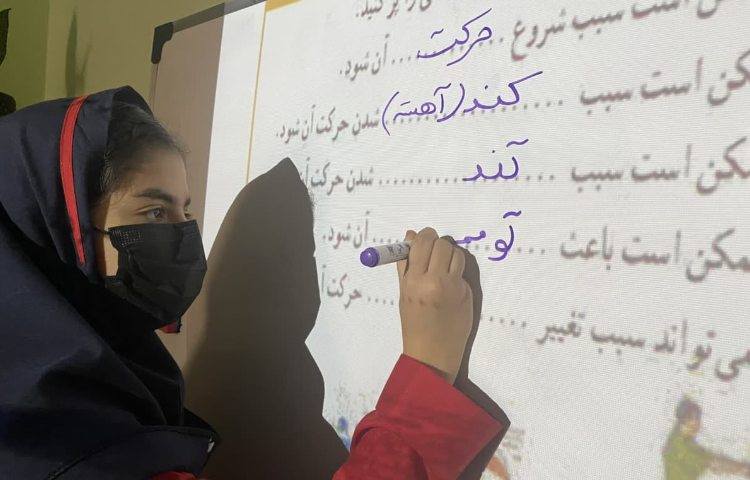 را پر کنید.
کن است سبب شروع ....حرکت.... آن شود.
کن است سبب ........کند(آهسته)........ شدن حرکت آن شود.
مکن است سبب ........تند........ شدن حرکت
ممکن است باعث ................ آن شود.
می تواند سبب تغییر ................ حرکت